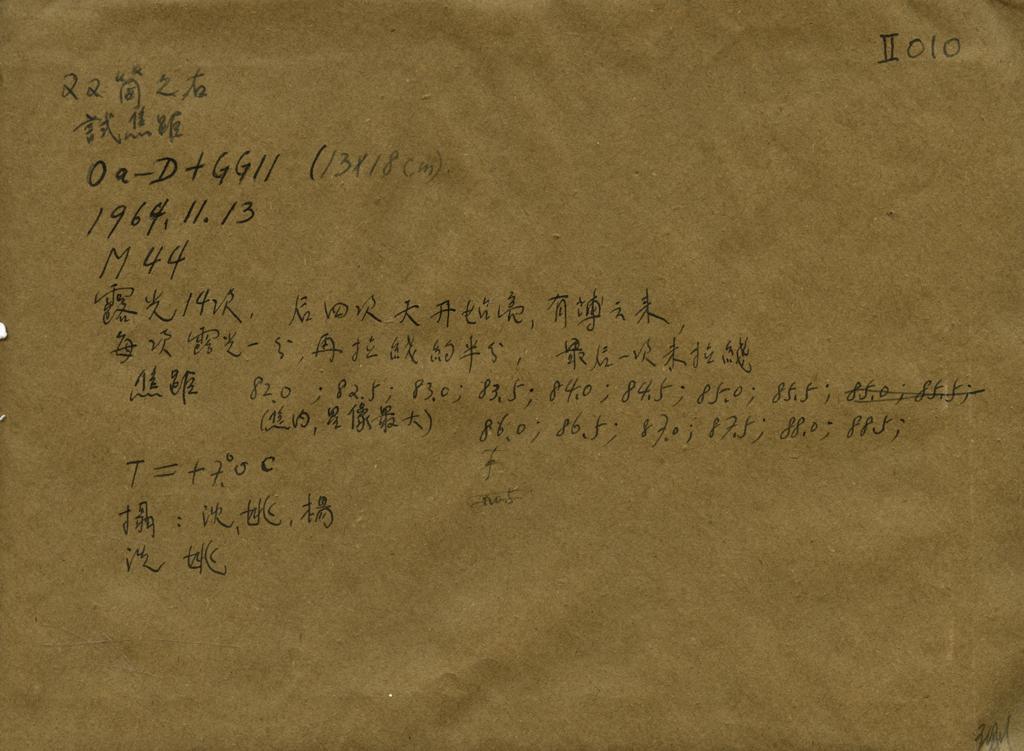 II010
双筒之右
試焦距
Oa-D+GG11 (13×18cm)
1964.11.13
M44
露光14次, 后四次天开始亮, 有薄云来,
每次露光一分, 再拉线约半分, 最后一次未拉线
焦距 82.0; 82.5; 83.0; 83.5; 84.0; 84.5; 85.0; 85.5; 85.0; 85.5;
(焦内, 星像最大) 86.0; 86.5; 87.0; 87.5; 88.0; 88.5;
T=+7.°0 C
攝: 沈, 姚, 楊
洗 姚